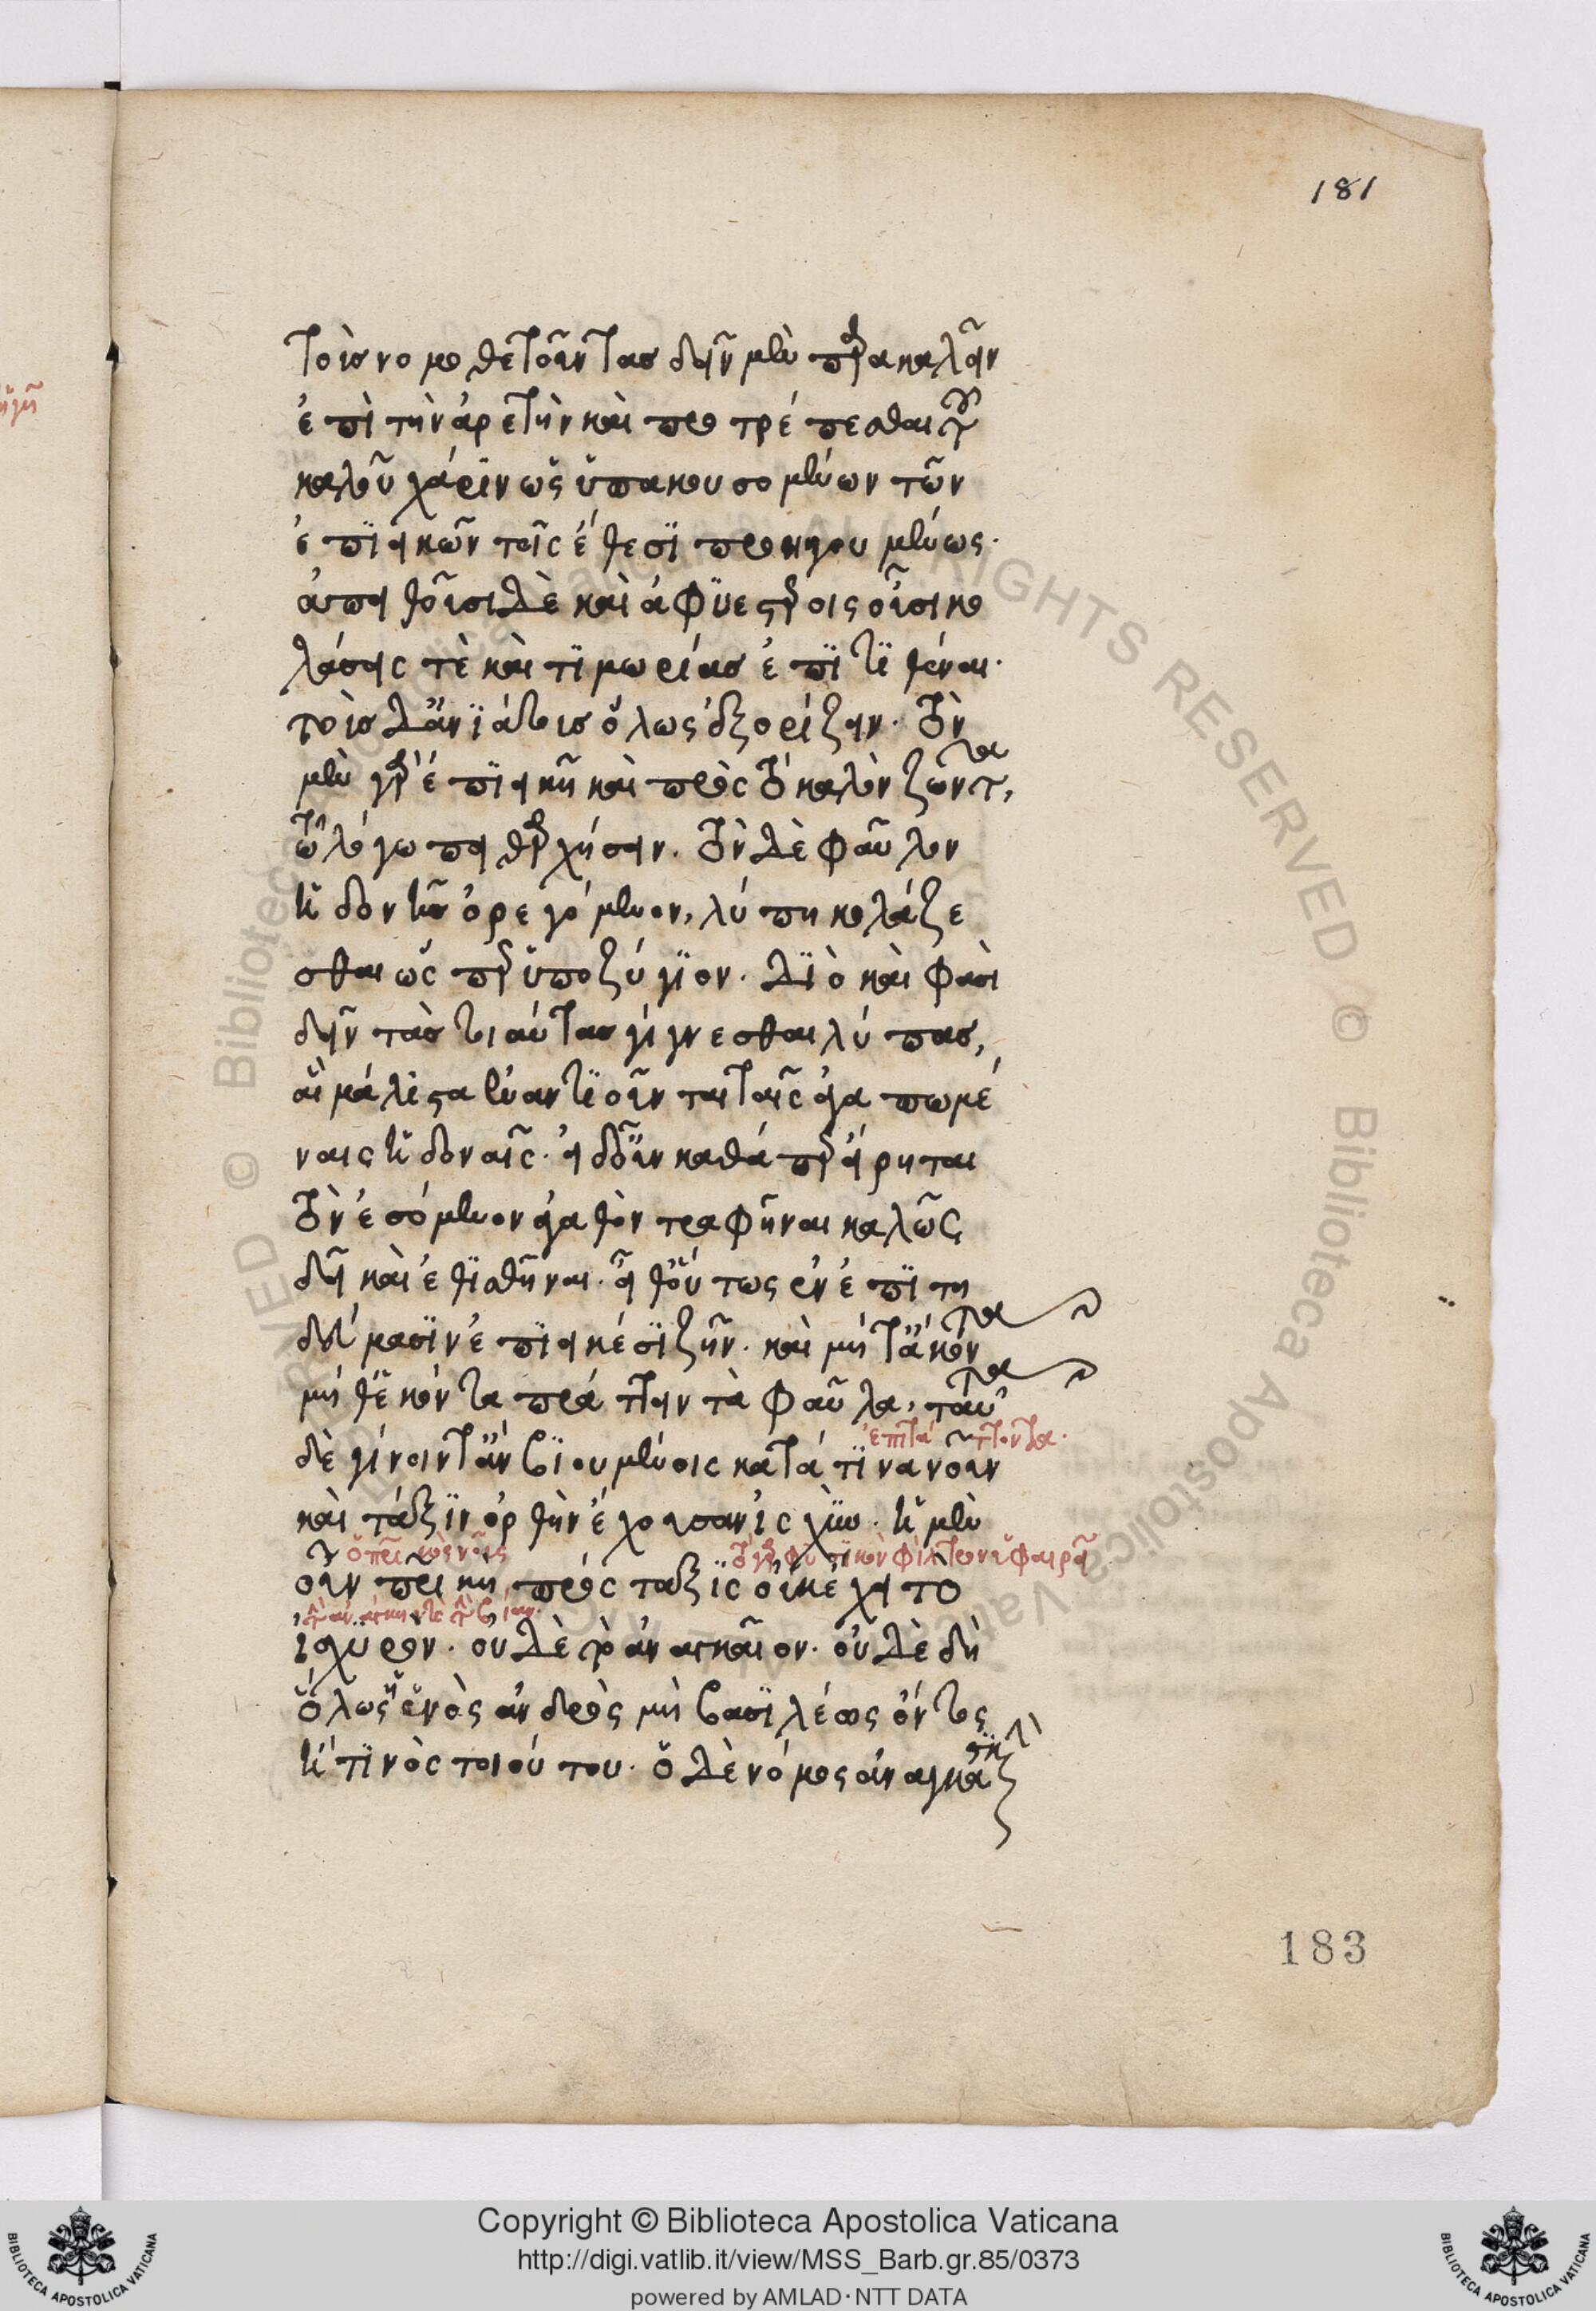 181
τοὺς νομοθετοῦντας δεῖν μὲν παρακαλεῖν
ἐπὶ τὴν ἀρετὴν καὶ προτρέπεσθαι τοῦ
καλοῦ χάριν ὡς ὑπακουσομένων τῶν
ἐπιεικῶν τοῖς ἔθεσι προηγουμένως·
ἀπειθοῦσι δὲ καὶ ἀφυεστέροις οὖσι κο
λάσεις τὲ καὶ τιμωρίας ἐπιτιθέναι·
τοὺς δ' ἀνιάτους ὅλως ἐξορίζειν· τὸν
μὲν γὰρ ἐπιεικῆ καὶ πρὸς τὸ καλὸν ζῶντα,
τῷ λόγω πειθαρχήσειν. τὸν δὲ φαῦλον
ἡδονῆς ὀρεγόμενον, λύπη κολάζε
σθαι ὥσπερ ὑποζύγιον. διό καὶ φασὶ
δεῖν τὰς τοιαύτας γίγνεσθαι λύπας,
αἳ μάλιστα ἐναντιοῦνται ταῖς ἀγαπωμέ
ναις ἡδοναῖς· εἰ δ' οὖν καθάπερ εἴρηται
τὸν ἐσόμενον ἀγαθὸν τραφῆναι καλῶς
δεῖ καὶ ἐθισθῆναι· εἶθ' οὕτως ἐν ἐπιτη
δεύμασιν ἐπιεικέσι ζῆν· καὶ μήτ' ἄκοντα
μήθ' ἑκόντα πράττειν τὰ φαῦλα, ταῦτα
ἐπιτάττοντα·
δὲ γίνοιντ' ἂν βιουμένοις κατά τινα νοῦν
καὶ τάξιν ὀρθὴν ἔχουσαν ἰσχύν· ἡ μὲν
οὖν πρικὴ πρόσταξις οὐκ ἔχει τὸ
ἰσχυρὸν· οὐδὲ τὸ ἀναγκαῖον· οὐδὲ δὴ
ὅλως ἡ ἑνὸς ἀνδρὸς μὴ βασιλέως ὄντος
ἤ τινὸς τοιούτου· ὁ δὲ νόμος ἀναγκαστικὴ
183
Copyright © Biblioteca Apostolica Vaticana
http://digi.vatlib.it/view/MSS_Barb.gr.85/0373
powered by AMLAD·NTT DATA
BIBLIOTECA APOSTOLICA VATICANA
BIBLIOTECA APOSTOLICA VATICANA